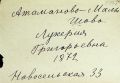 Атаманово-Мале
Шово
Лукерия
Григорьевна
1872
Новосельская 33